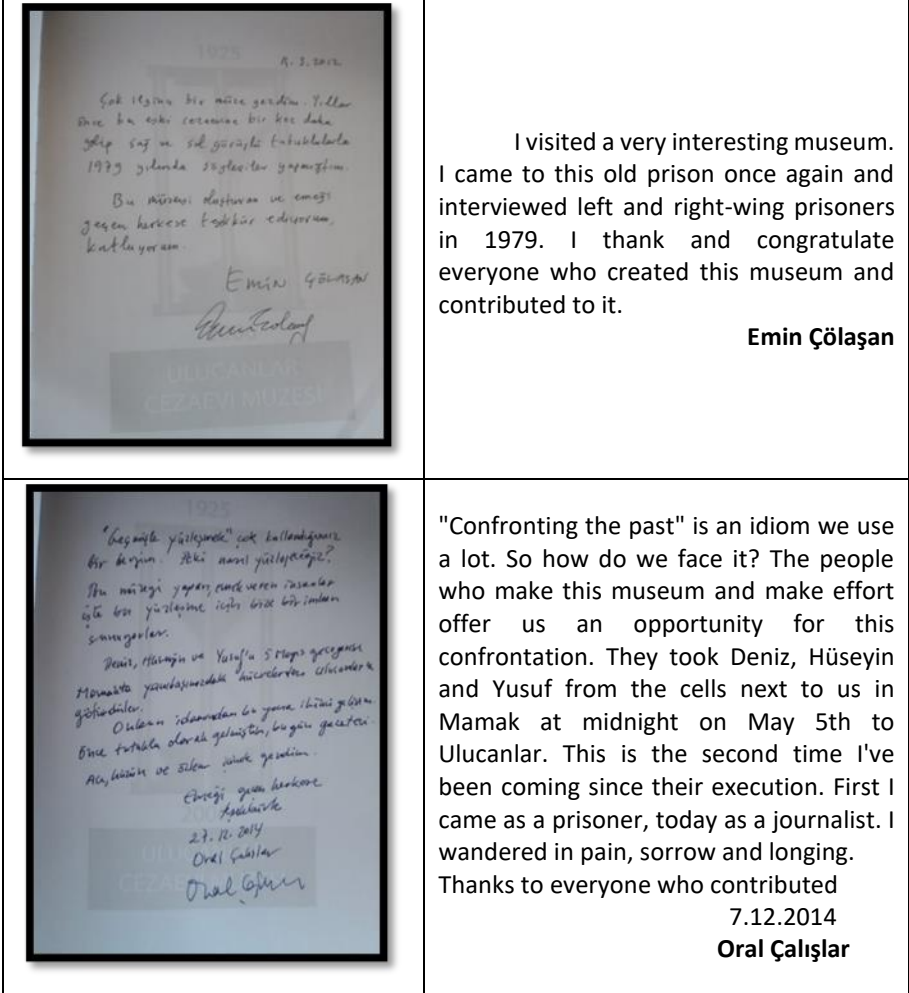 1925
9.3.2012
Çok ilginç bir müze gezdim. Yıllar
önce bu eski cezaevine bir kez daha
gelip sağ ve sol görüşlü tutuklularla
1979 yılında söyleşiler yapmıştım.
Bu müzeyi oluşturan ve emeği
geçen herkese teşekkür ediyorum,
kutluyorum.
Emin ÇÖLAŞAN
ULUCANLAR
CEZAEVİ MÜZESİ
I visited a very interesting museum.
I came to this old prison once again and
interviewed left and right-wing prisoners
in 1979. I thank and congratulate
everyone who created this museum and
contributed to it.
Emin Çölaşan
1925
"Geçmişle yüzleşmek" çok kullandığımız
bir deyim. Peki nasıl yüzleşeceğiz?
Bu müzeyi yapan, emek veren insanlar
işte bu yüzleşme için bize bir imkan
sunuyorlar.
Deniz, Hüseyin ve Yusuf'u 5 Mayıs gecesi
Mamakta yanıbaşımızdaki hücrelerden Ulucanlar'a
götürdüler.
Onların idamından bu yana ikinci gelişim.
Önce tutuklu olarak gelmiştim, bugün gazeteci.
Acı, hüzün ve özlem içinde gezdim.
Emeği geçen herkese
teşekkürle
27.12.2014
Oral Çalışlar
"Confronting the past" is an idiom we use
a lot. So how do we face it? The people
who make this museum and make effort
offer us an opportunity for this
confrontation. They took Deniz, Hüseyin
and Yusuf from the cells next to us in
Mamak at midnight on May 5th to
Ulucanlar. This is the second time I've
been coming since their execution. First I
came as a prisoner, today as a journalist. I
wandered in pain, sorrow and longing.
Thanks to everyone who contributed
7.12.2014
Oral Çalışlar